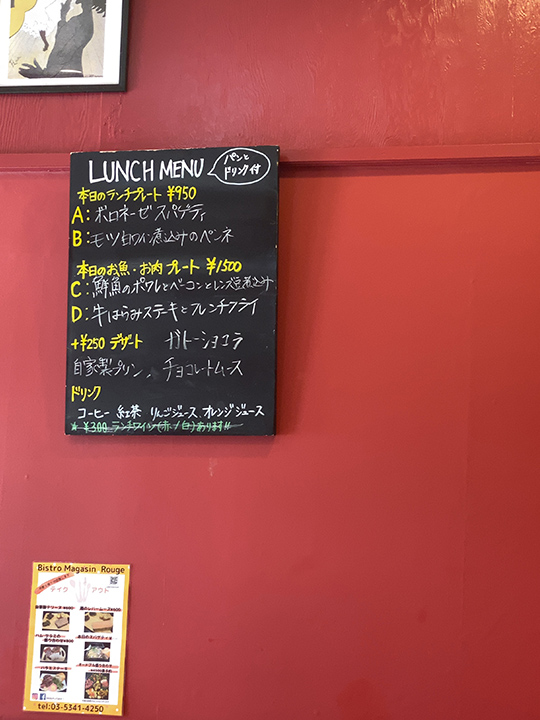 LUNCH MENU
パンと
ドリンク付
本日のランチプレート ¥950
A:ボロネーゼスパゲティ
B:モツ白ワイン煮込みのペンネ
本日のお魚・お肉プレート ¥1500
C:鮮魚のポワレとベーコンとレンズ豆煮込み
D:牛はらみステーキとフレンチフライ
+¥250 デザート ガトーショコラ
自家製プリン、チョコレートムース
ドリンク
コーヒー 紅茶 りんごジュース オレンジジュース
★ ¥300 ランチワイン(赤/白)あります!!
Bistro Magasin Rouge
テイク アウト
tel:03-5341-4250